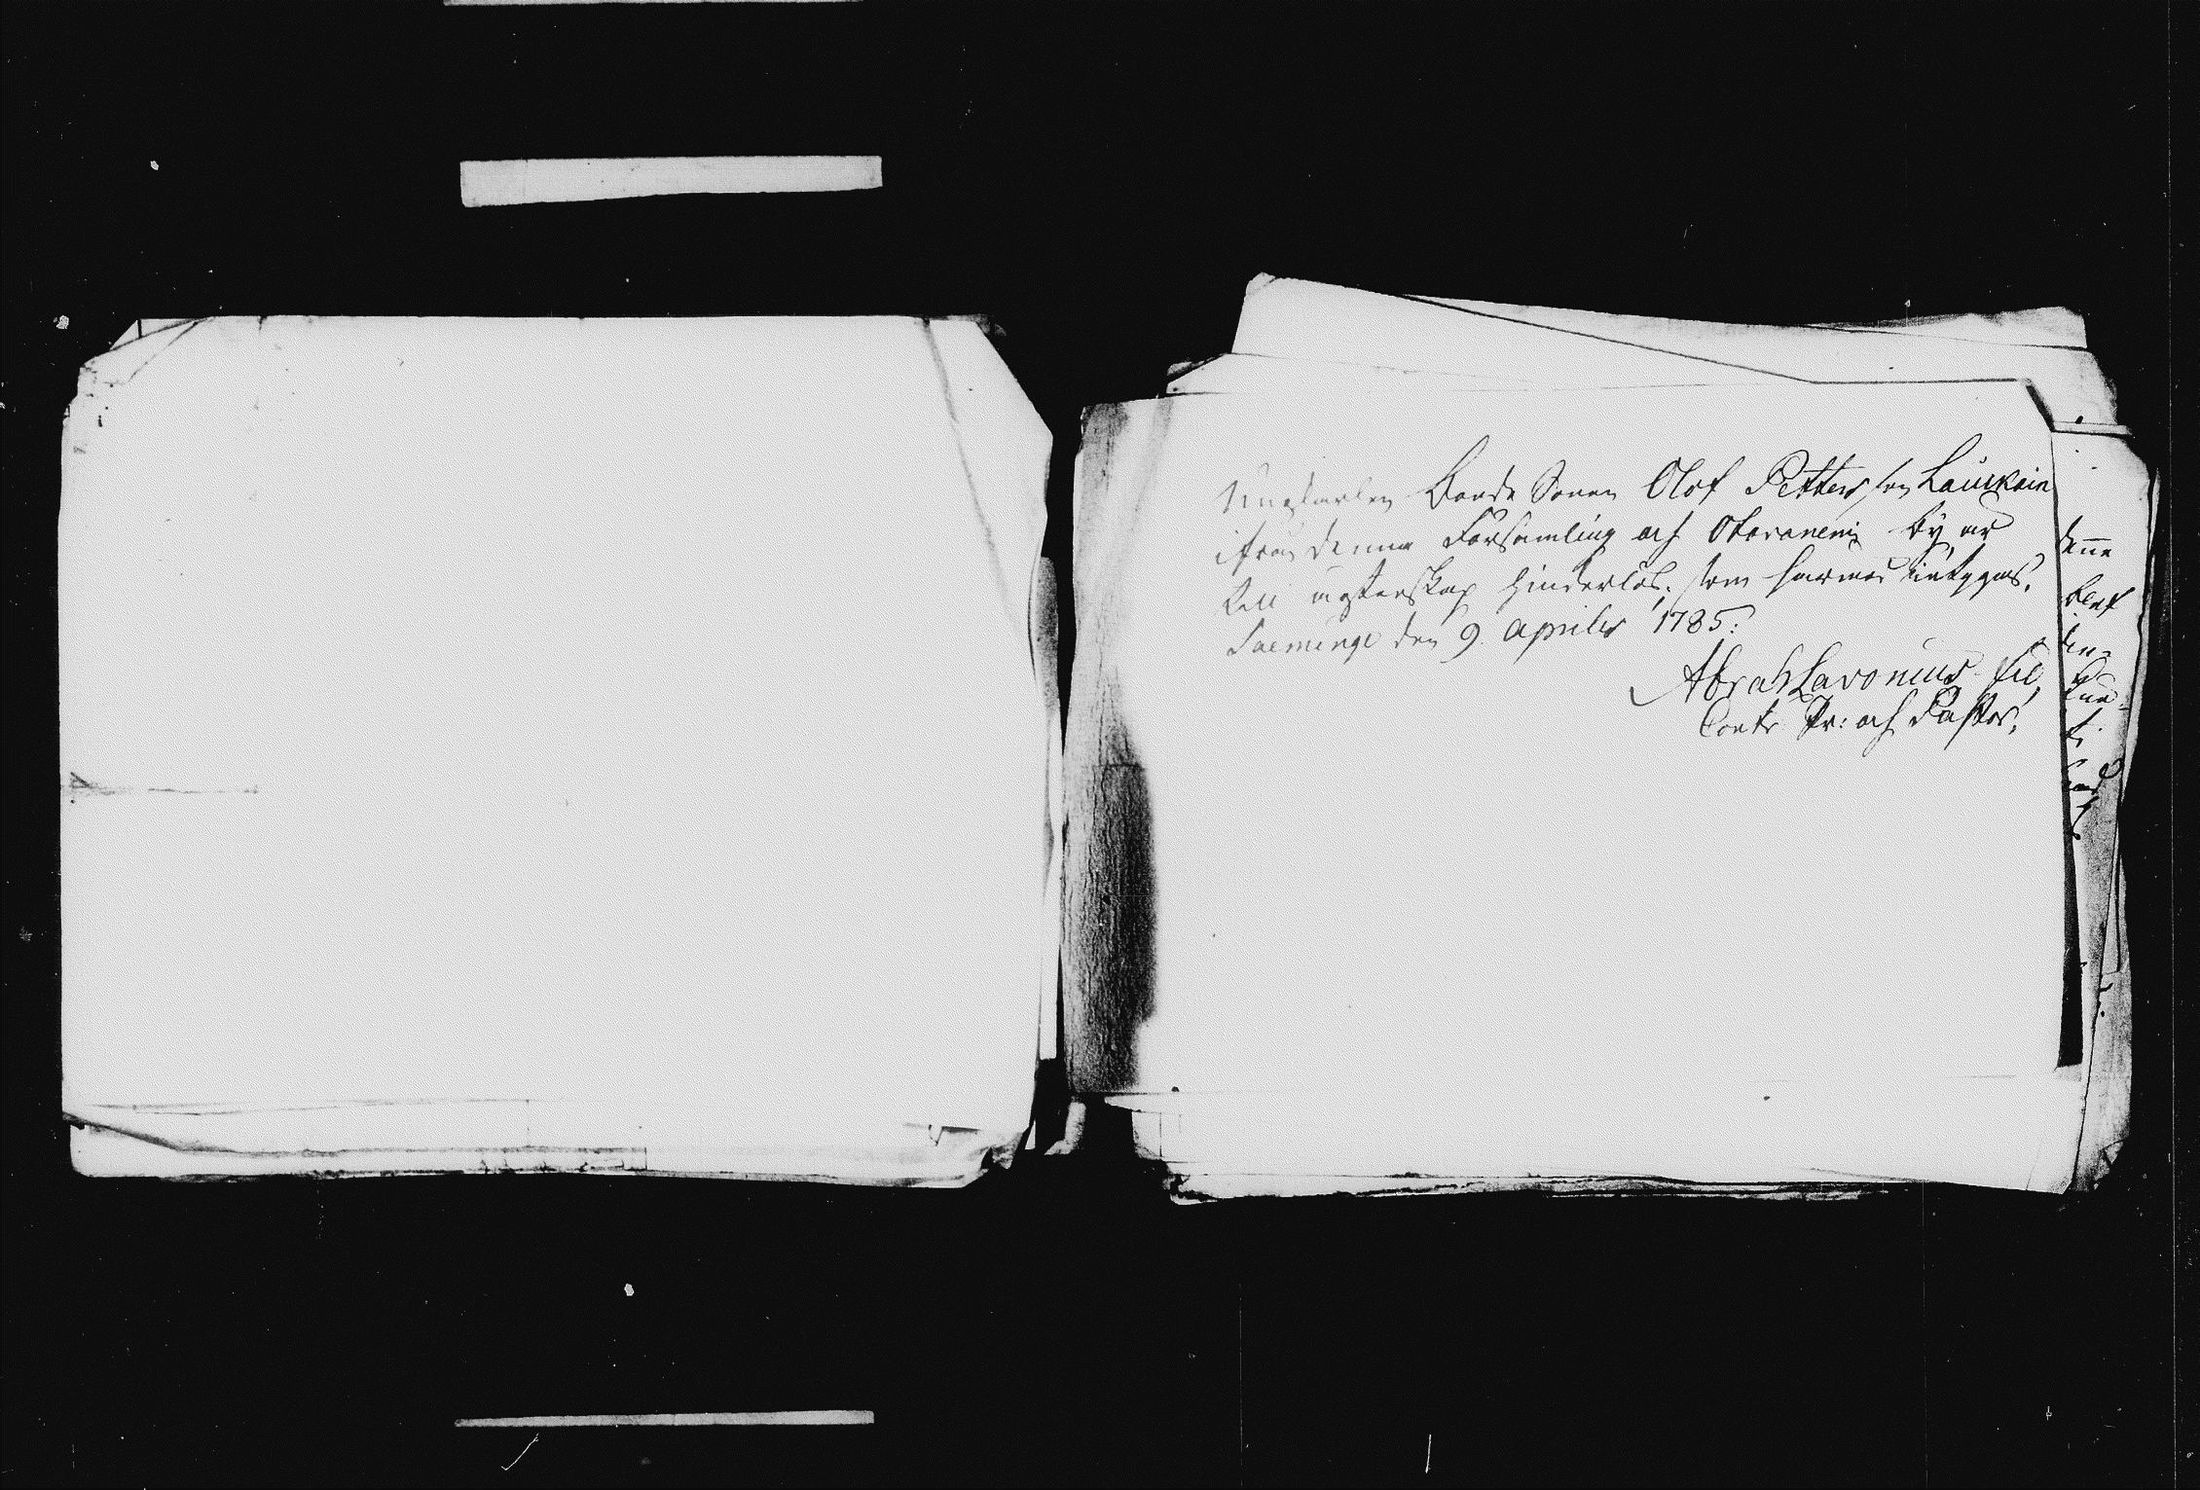 Ungkarlen Bonde Sonen Olof Pettersson Lauikain
ifrån denna Församling och Otavanemi by är
till ägtenskap hinderlös, som härmed intygas.
Saeminge den 9 aprilis 1785:
Abrah Lavonius fil
Contr Pr: och Pastor.
denne